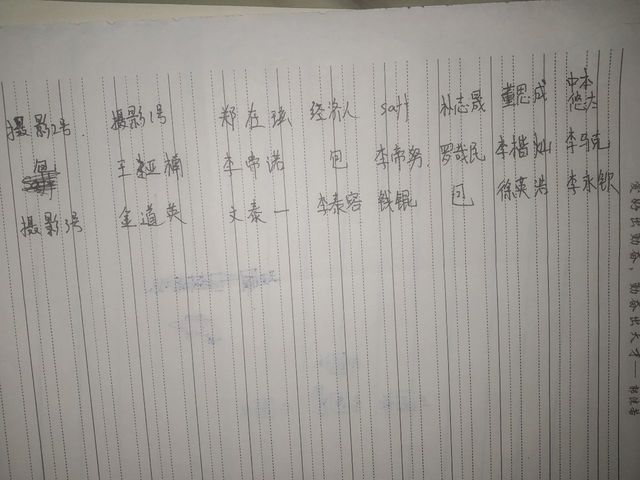 摄影2号 摄影1号 郑在玹 经济人 saff 朴志晟 董思成 中本悠太
包 王亚楠 李帝诺 包 李帝努 罗哉民 李楷灿 李马克
摄影3号 金道英 文泰一 李泰容 钱锟 包 徐英浩 李永钦